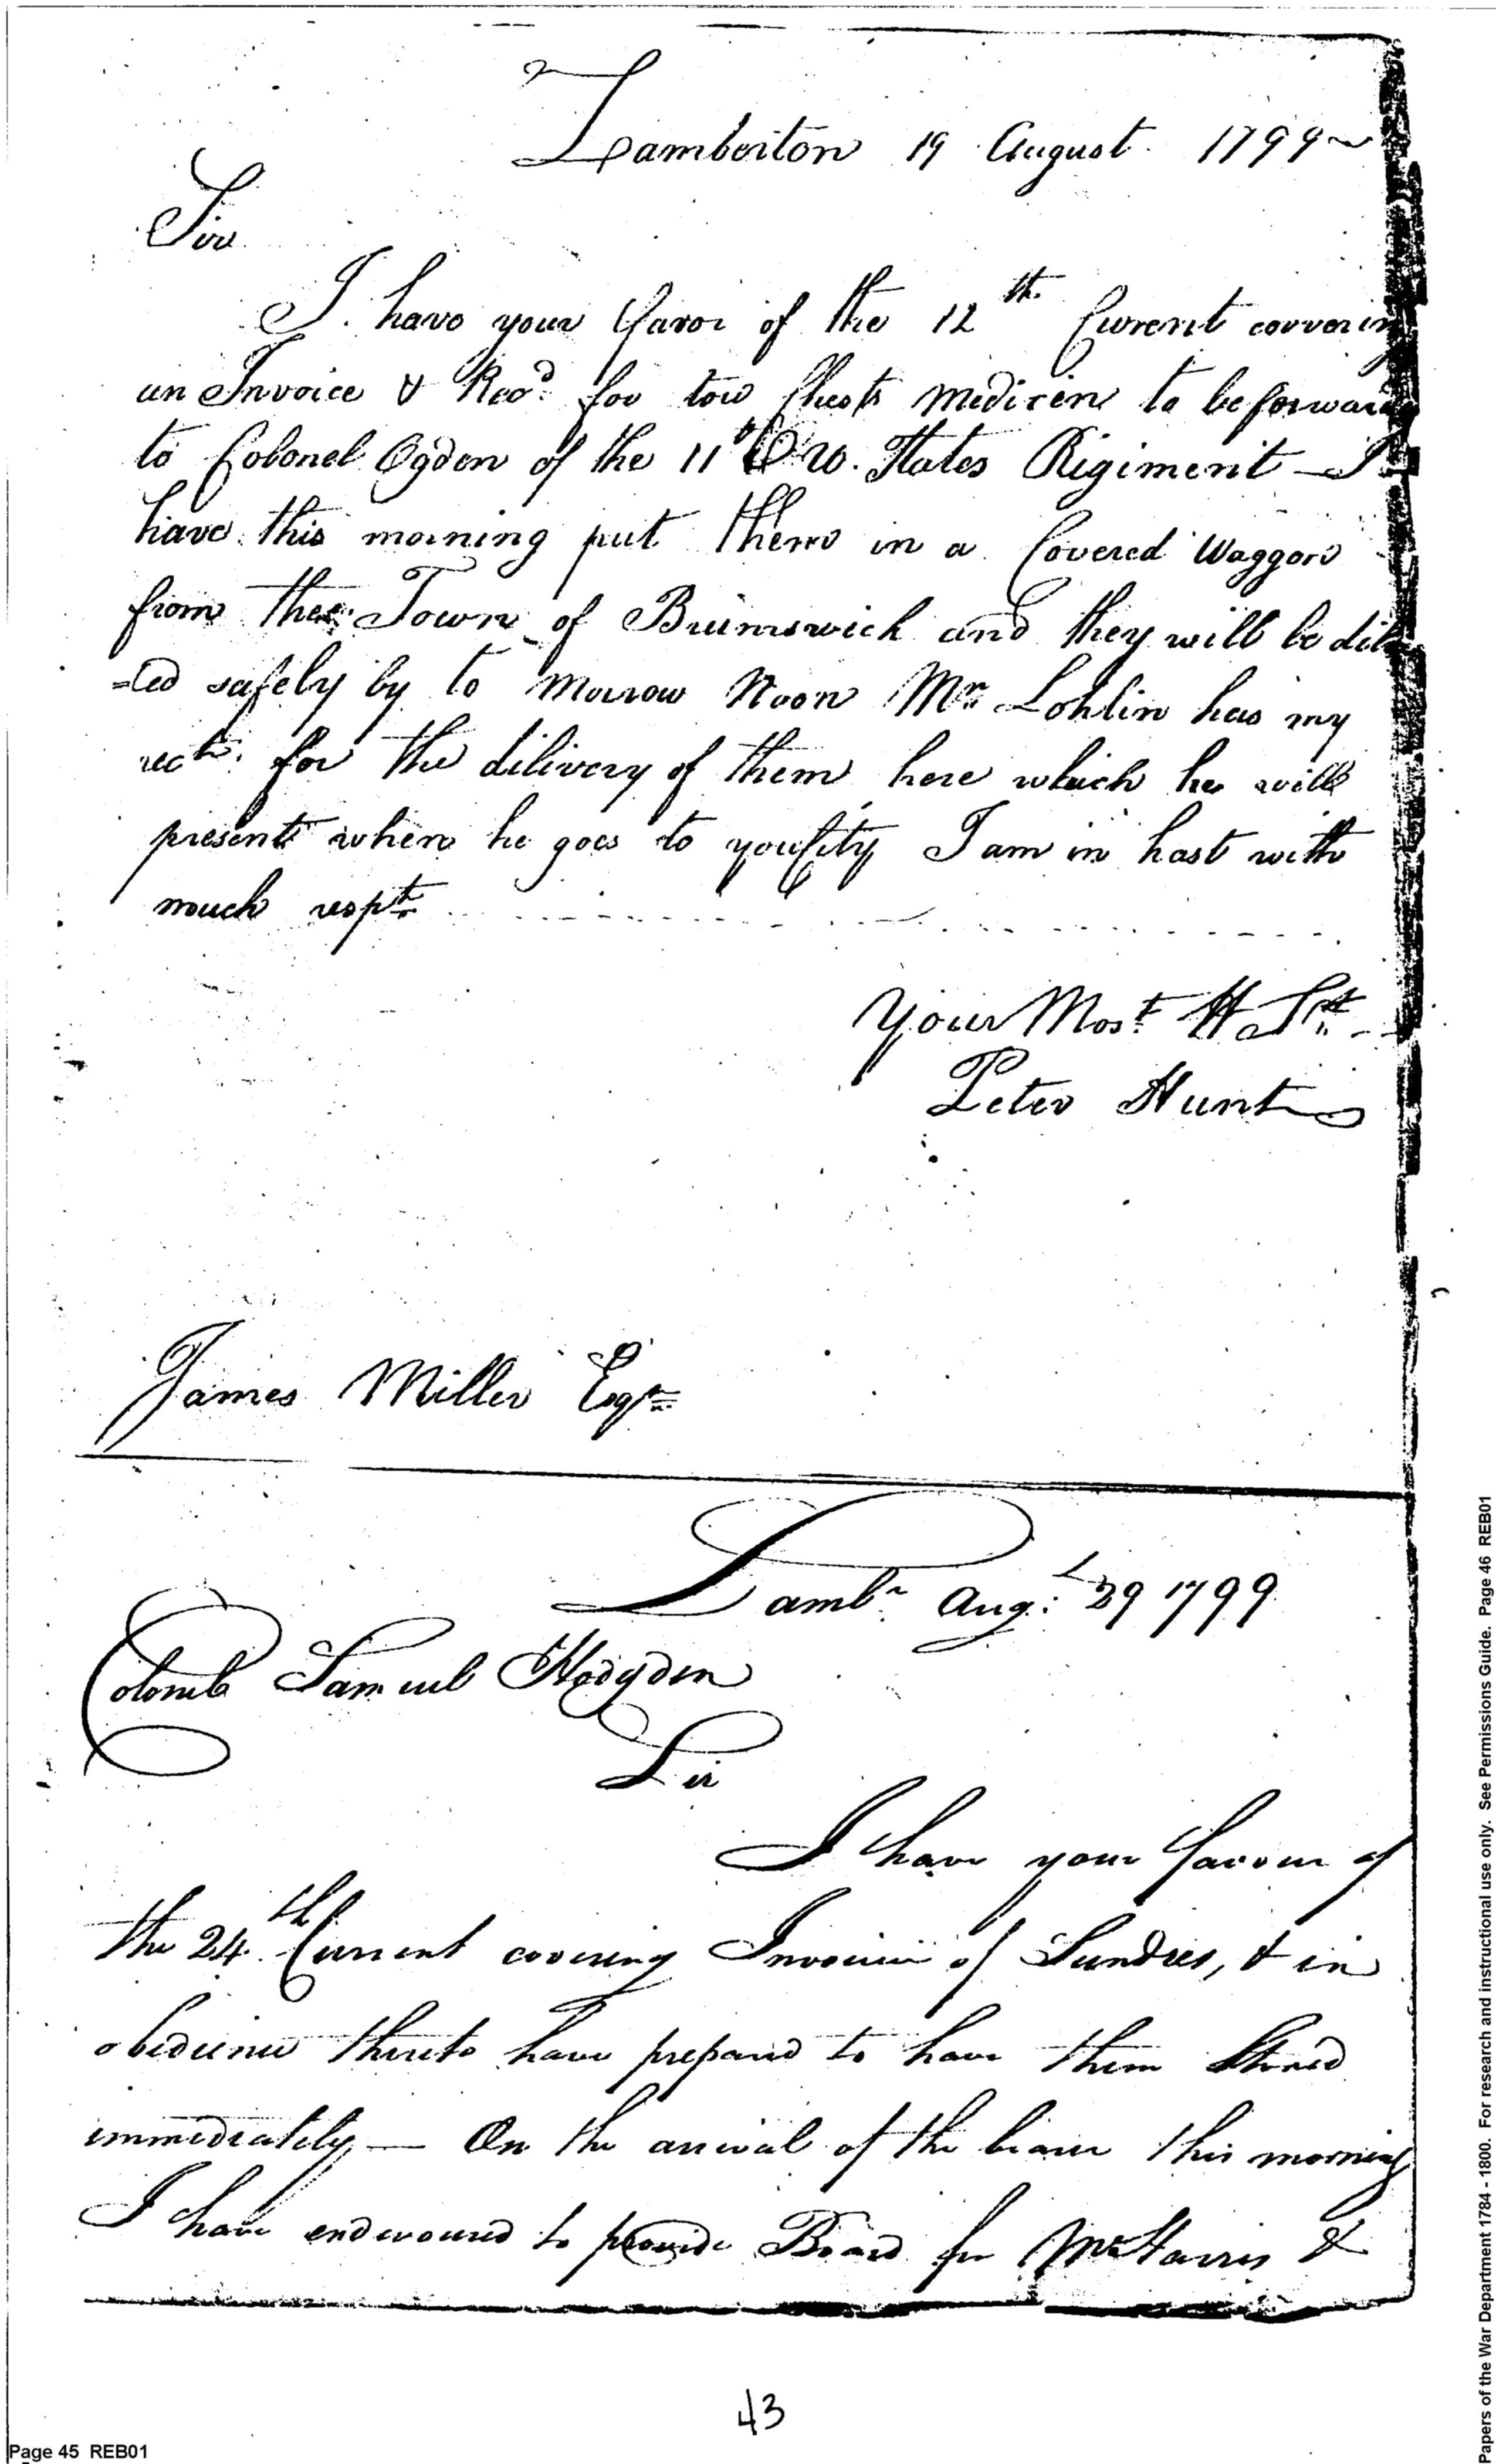 Lamberton 19 August 1799
Sir
I have your favor of the 12th Current covering
an Invoice & Recd for tow Chests Medicin to be forward
to Colonel Ogden of the 11th U. States Rigiment — I
have this morning put them in a Covered Waggon
from the Town of Brunswick and they will be dil
=ed safely by to Morrow Noon Mr Lohlin has my
rect for the dilivery of them here which he will
present when he goes to your City I am in hast with
much respt
Your Most H St
Peter Hunt
James Miller Esqr
Lambn Augt 29 1799
Colonel Samuel Hodgden
Sir
I have your favour of
the 24th Current covering Invoice of Sundries, & in
obedience thereto have prepared to have them Stored
immediately — On the arrival of the bearer this morning
I have endevoured to provide Board for Mr Harris &
43
Page 45 REB01
Papers of the War Department 1784 - 1800. For research and instructional use only. See Permissions Guide. Page 46 REB01